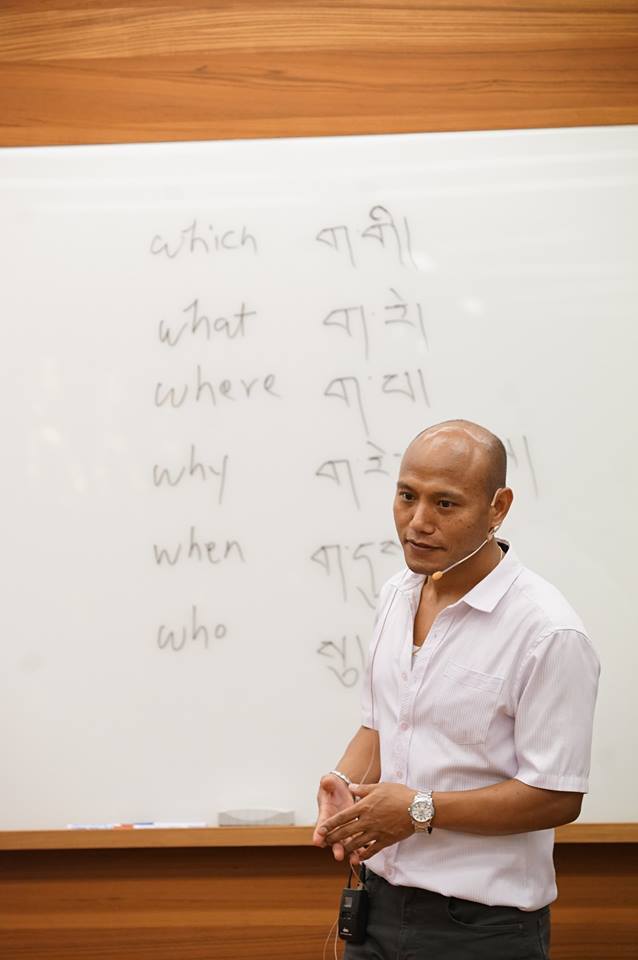 which ག་གི།
what ག་རེ།
where ག་པ།
why ག་རེ
when ག་དུ
who སུ།